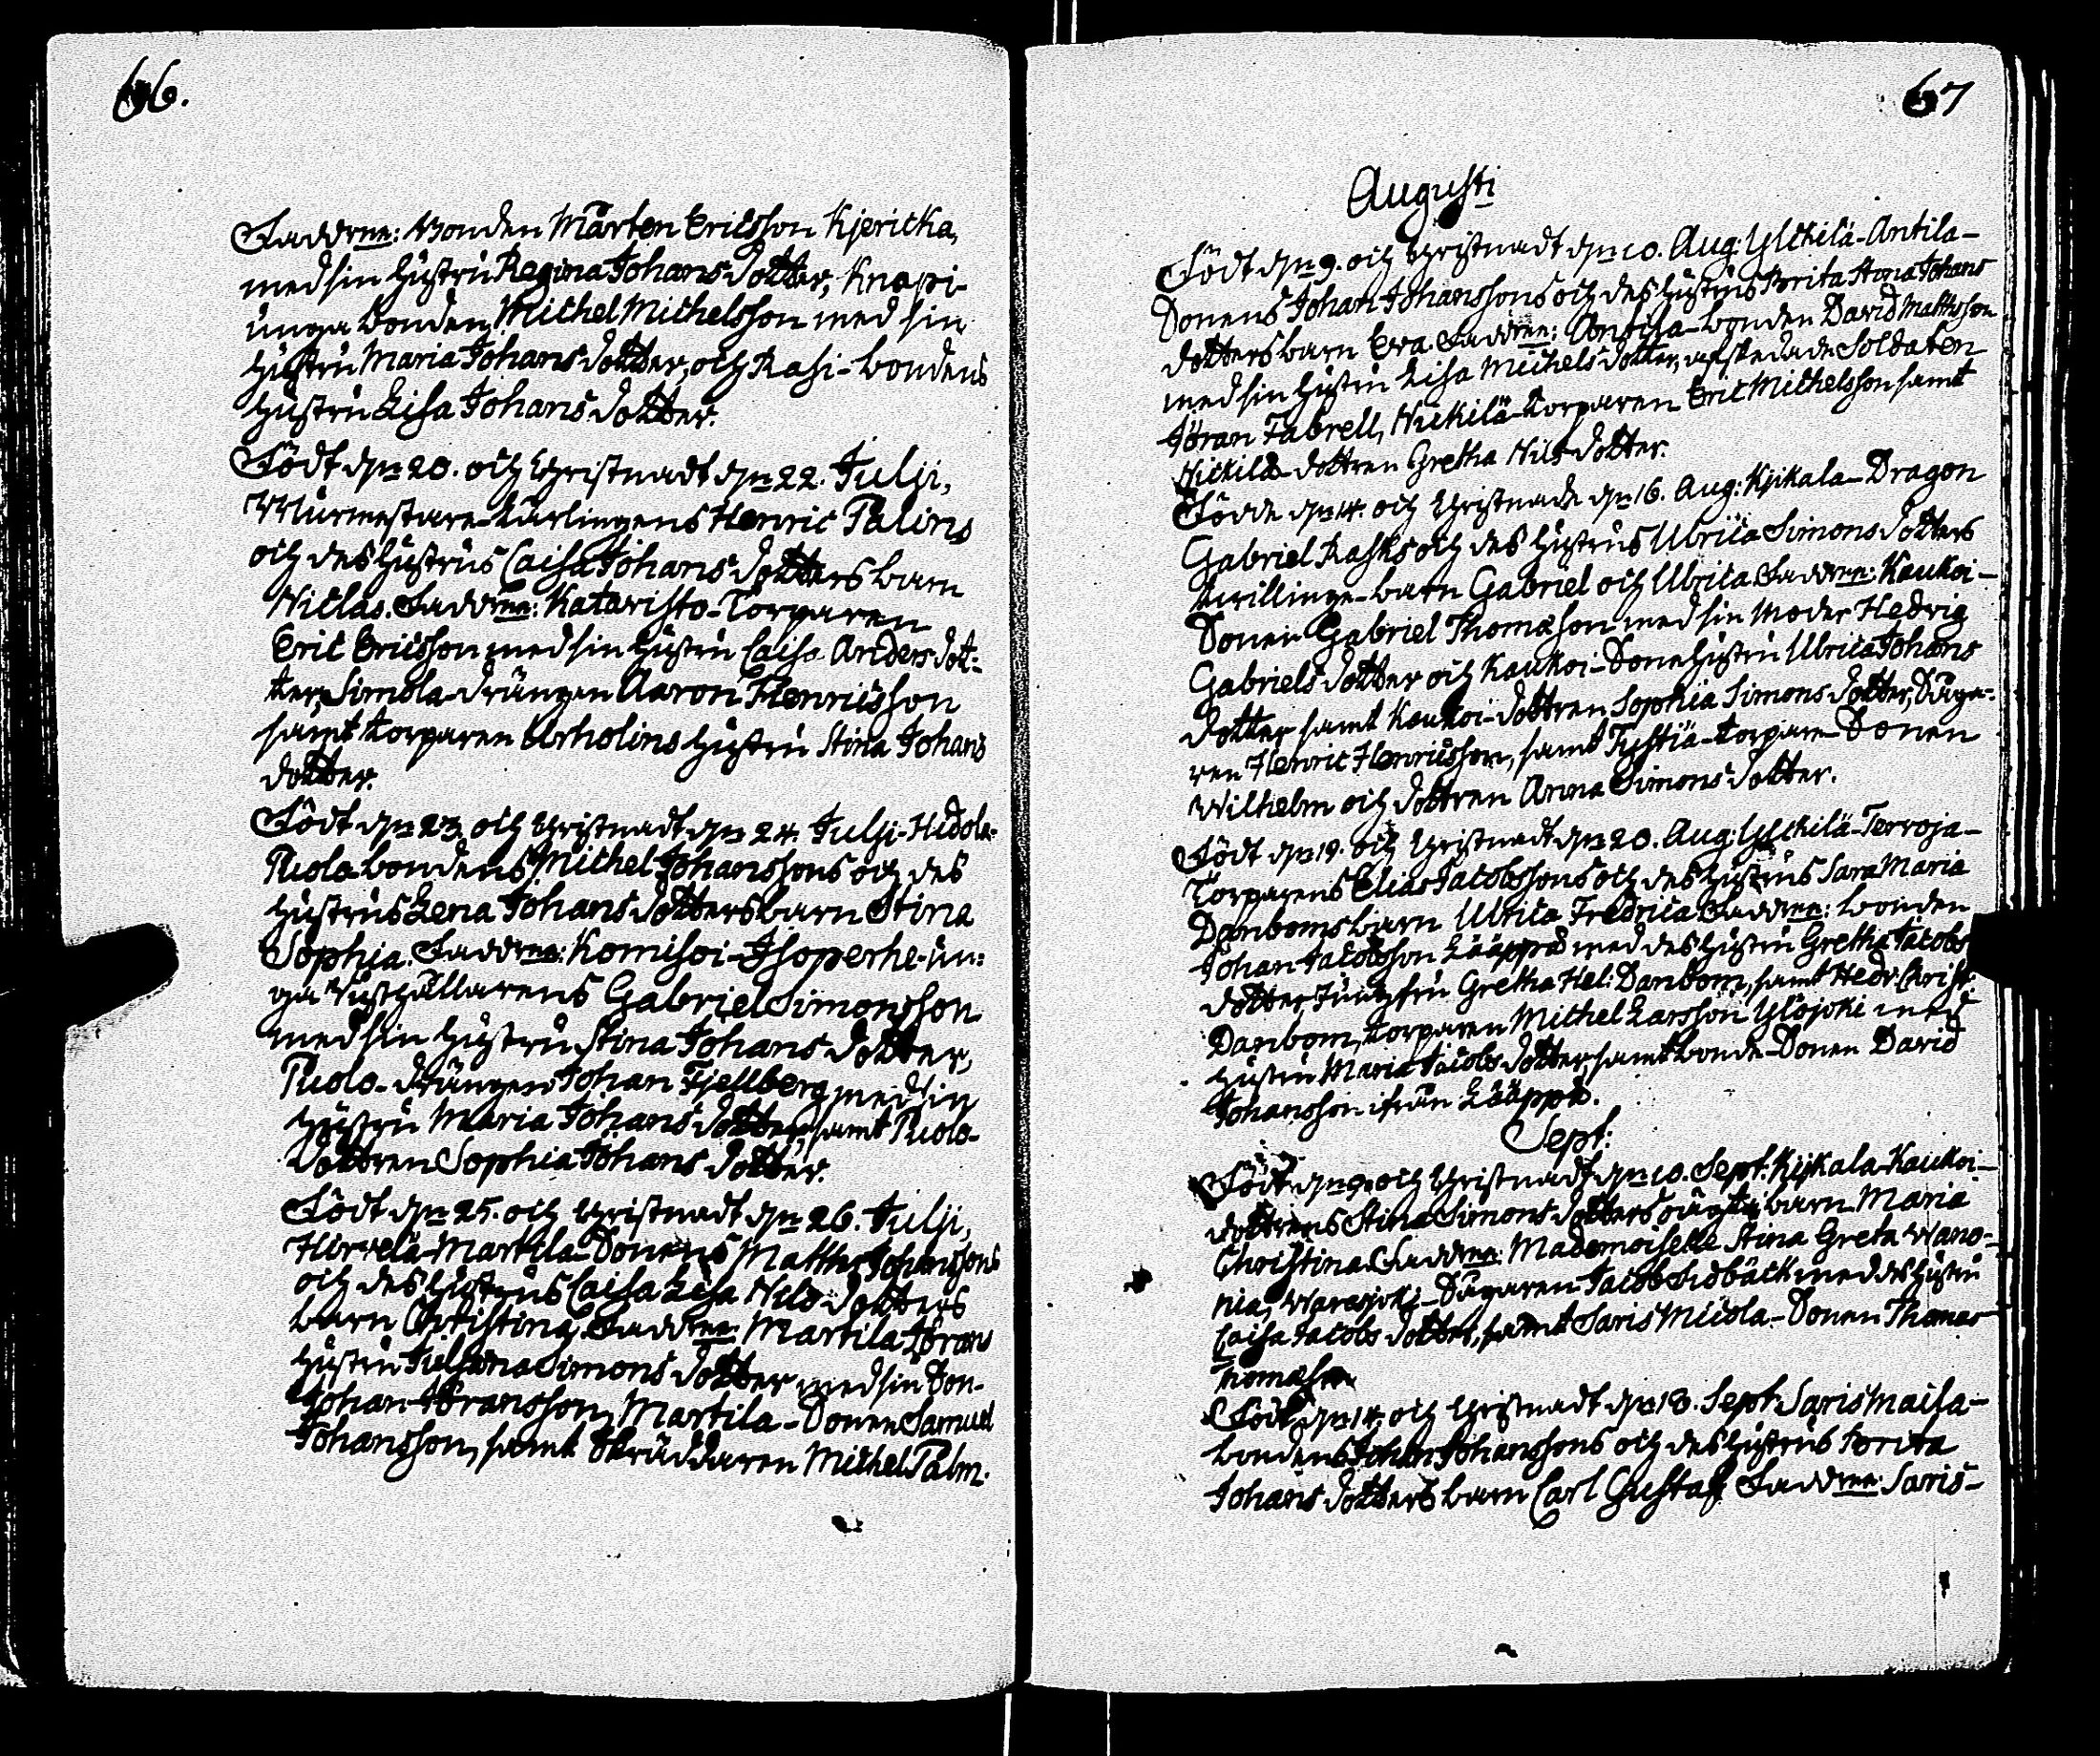 66.
Faddrne: Bonden Mårten Ericsson Kjericka,
med sin hustru Regina Johans dotter, Knapi-
unga bonden Michel Michelsson med sin
hustru Maria Johans dotter, och Rasi-bondens
hustru Lisa Johans dotter.
Född d:n 20. och Christnadt d:n 22. Julji,
Murmestare-Lärlingens Henric Palins
och des hustrus Caisa Johans dotters barn
Niclas. Faddrne: Kataristo-Torparen
Eric Ericsson med sin hustru Caisa Anders dot-
ter, Simola-drängen Aaron Henricsson
samt torparen Urholins hustru Stina Johans
dotter.
Född d:n 23. och Christnadt d:n 24. Julji-Hidola-
Puola bondens Michel Johanssons och des
hustrus Lena Johans dotters barn Stina
Sophia. Faddrne: Komisoi-Isoperhe-un-
ga Rusthållarens Gabriel Simonsson
med sin hustru Stina Johans dotter,
Puolo-drängen Johan Fjellberg med sin
hustru Maria Johans dotter, samt Puolo-
dottren Sophia Johans dotter.
Född d:n 25. och Christnadt d:n 26. Julji,
Hirvelä-Martila-Sonens Matths Johanssons
och des hustrus Caisa Lisa Nils dotters
barn Christina. Faddrne: Martila Jörans
hustru Juliana Simons dotter med sin Son
Johan Jöransson, Martila-Sonen Samuel
Johansson, samt Skräddaren Michel Palm.
67
Augusti
Född d:n 9. och Christnadt d:n 10. Aug: Ylikilä-Antila-
Sonens Johan Johanssons och des hustrus Brita Stina Johans
dotters barn Eva. Faddrne: Antila-bonden David Mattsson
med sin hustru Lisa Michels dotter, afskedade Soldaten
Jöran Fabrell, Nickilä-torparen Eric Michelsson samt
Nickilä-dottren Gretha Nils dotter.
Födde d:n 14. och Christnade d:n 16. Aug: Kjikala-Dragon
Gabriel Rasks och des hustrus Ulrica Simons dotters
tvillinge-barn Gabriel och Ulrica. Faddrne: Kaukoi-
Sonen Gabriel Thomason med sin moder Hedvig
Gabriels dotter och Kaukoi-Sonehustru Ulrica Johans
dotter samt Kaukoi-dottren Sophia Simons dotter, Såga-
ren Henric Henricsson, samt Tystiä-torpare-Sonen
Wilhelm och dottren Anna Simons dotter.
Född d:n 19. och Christnadt d:n 20. Aug: Ylikilä-Terroja-
Torparens Elias Jacobssons och des hustrus Sara Maria
Danboms barn Ulrica Fredrica. Faddrne: bonden
Johan Jacobsson Lääppä med des hustru Gretha Jacobs
dotter, Jungfru Gretha Hel: Danbom, samt Hedv: Christ:
Danbom, torparen Michel Larsson Ylöjoki med
hustru Maria Jacobs dotter, samt bonde-Sonen David
Johansson ifrån Lääppä.
Sept:
Född d:n 9. och Christnadt d:n 10. Sept: Kjikala-Kaukoi-
dottrens Stina Simons dotters oägta barn Maria
Christina. Faddrne: Mademoiselle Stina Greta Wano-
nia, Waresjoki-Sågaren Jacob Sidbäck med des hustru
Caisa Jacobs dotter, samt Saris Miiola-Sonen Thomas
Thomason
Född d:n 14. och Christnadt d:n 18. Sept: Saris Maisa-
bondens Johan Johanssons och des hustrus Brita
Johans dotters barn Carl Gustaf. Faddrne: Saris-